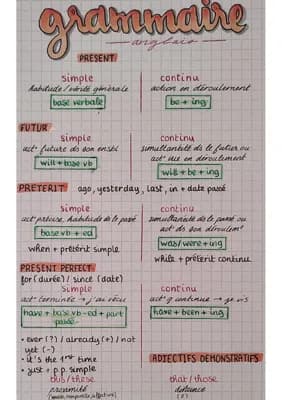 grammaire
anglais
PRESENT
simple
habitude / vérité générale
base verbale
continu
action en déroulement
be + ing
FUTUR
simple
act° future ds son ensble
will + base vb
continu
simultanéité de le futur ou
act° vue en déroulement
will + be + ing
PRETERIT ago, yesterday, last, in + date passé
simple
act° précise, habitude de le passé
base vb + ed
when + prétérit simple
continu
simultanéité de le passé ou
act° ds son déroulem^t
was/were + ing
while + prétérit continu
PRESENT PERFECT
for (durée) / since (date)
simple
act° terminée → j'ai vécu
have + base vb - ed + part
passé
continu
act° q continue → je vis
have + been + ing
• ever (?) / already (+) / not
yet (-)
• it's the 1st time
• just + p.p. simple
ADJECTIFS DEMONSTRATIFS
this / these
proximité
that / those
distance